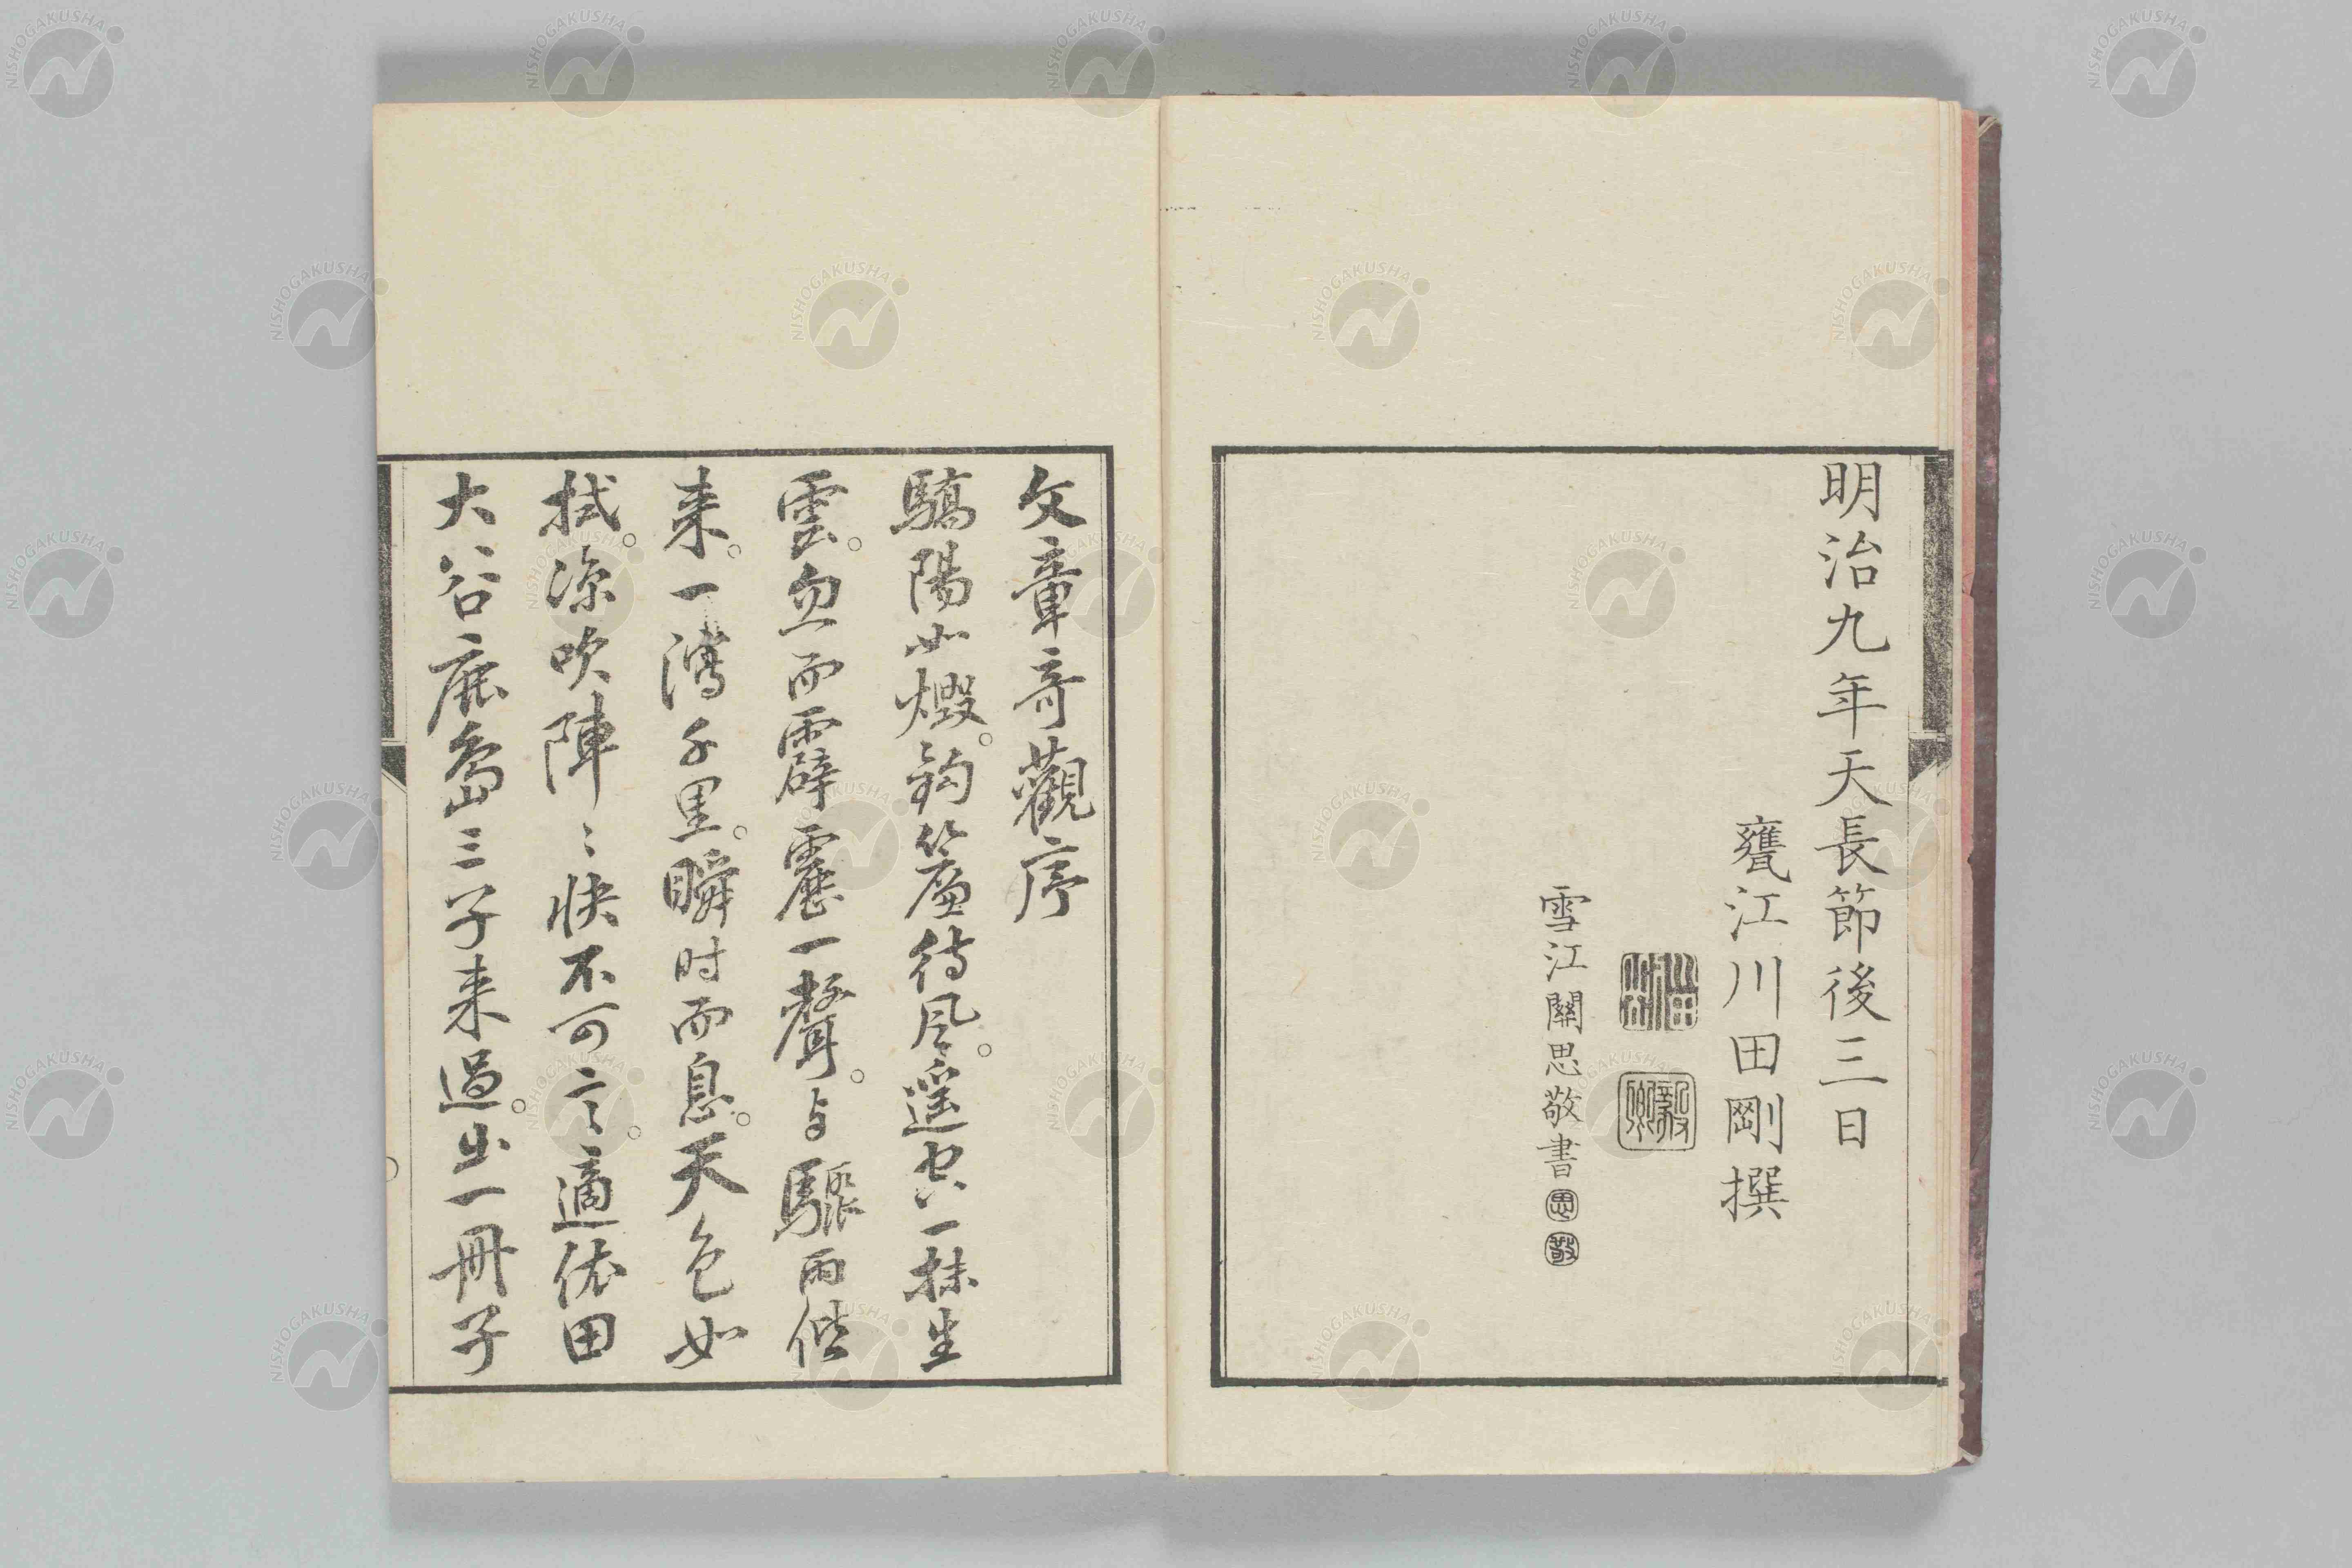 明治九年天長節後三日
甕江川田剛撰
毅卿
雪江關思敬書
思
敬
文章竒觀序
驕陽如燬。鈎簾待風。遥空一抹生
雲。忽而霹靂一聲。与驟雨偕
来。一瀉千里。瞬时而息。天色如
拭。凉吹陣〻快不可言。適依田
大谷鹿嶌三子来過。出一冊子
NISHOGAKUSHA